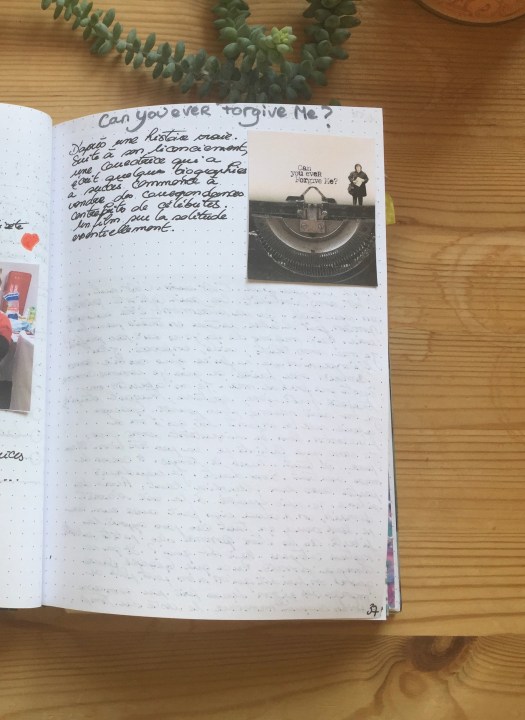 Can you ever Forgive Me?
D'après une histoire vraie.
Suite à son licenciement,
une correctrice qui a
écrit quelques biographies
à succès commence à
vendre des correspondances
contrefaits de célébrités.
Un film sur la solitude
essentiellement.
Can
you ever
Forgive Me?
37